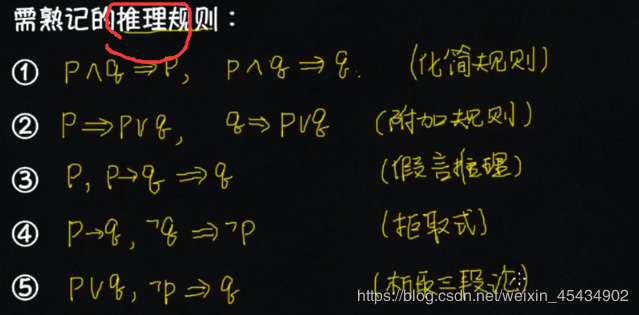 需熟记的推理规则：
① P∧q⇒P, P∧q⇒q. (化简规则)
② P⇒P∨q, q⇒P∨q (附加规则)
③ P, P→q⇒q (假言推理)
④ P→q, ¬q⇒¬P (拒取式)
⑤ P∨q, ¬P⇒q (析取三段论)
https://blog.csdn.net/weixin_45434902